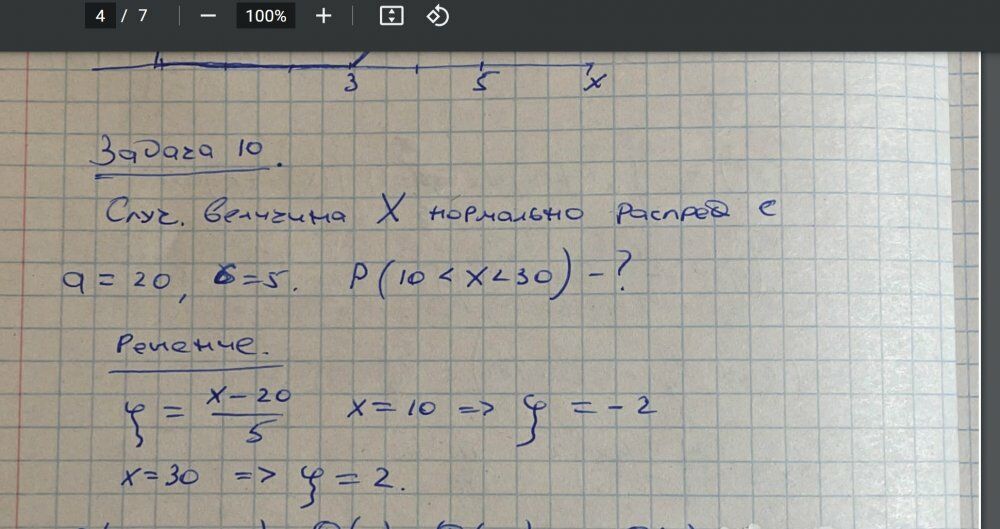 4 / 7 — 100% +
3 5 x
Задача 10.
Случ. величина X нормально распред с
a = 20, б = 5. P(10 < x < 30) – ?
Решение.
ξ = x – 20 / 5 x = 10 => ξ = – 2
x = 30 => ξ = 2.